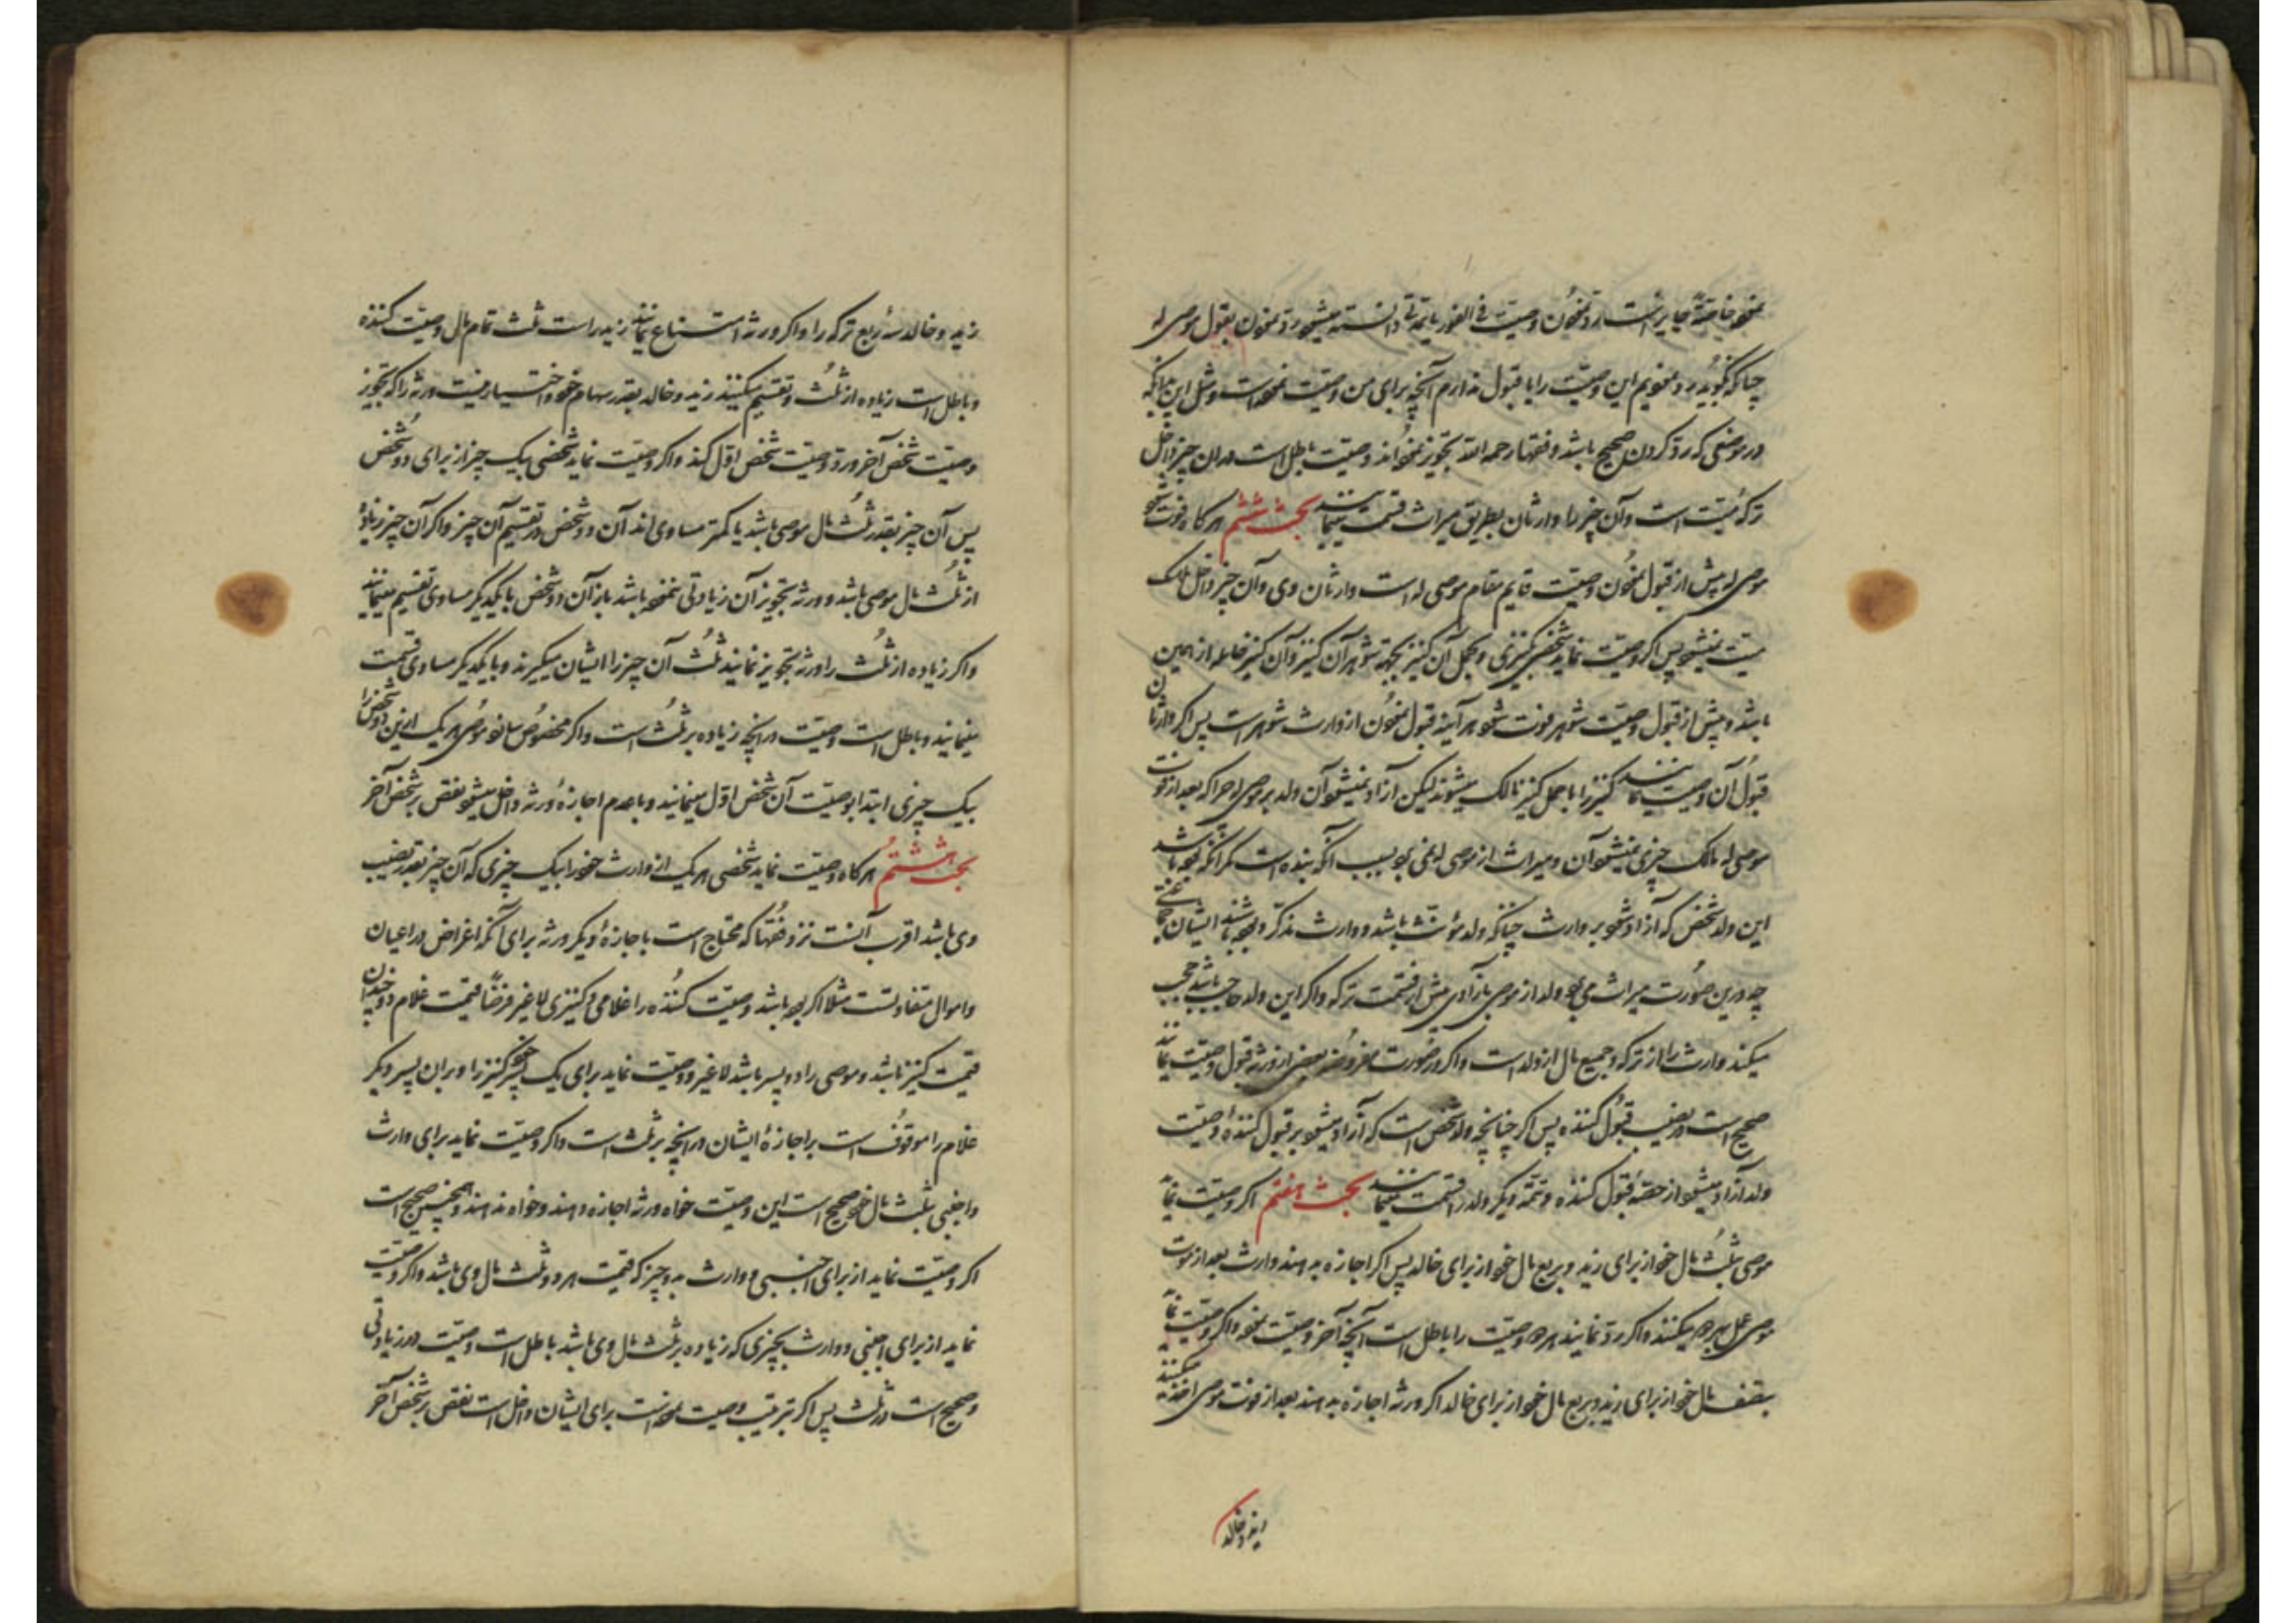 چنانکه بگوید رد نمودیم این وصیّت را یا قبول ندارم آنچه برای من وصیّت نموده است و مثل این هرآنکه
در موضعی که رد کردن صحیح باشد و فقها رحمه الله تجویز نموده‌اند وصیّت باطل است و آن چیز داخل
ترکهٔ میّت است و آن چیز را وارثان بطریق میراث قسمت مینمایند بحث ششم هرگاه فوت شود
موصی له پیش از قبول نمودن وصیّت قایم مقام موصی له است وارثان وی و آن چیز داخل ملک
میّت نمیشود پس اگر وصیّت نماید شخصی کنیزی و بحمل آن کنیز بجهة شوهر آن کنیز و آن کنیز حامله از همین
باشد و پیش از قبول وصیّت شوهر فوت شود هر آینه قبول نمودن از وارث شوهر است پس اگر وارثان
قبول آن وصیّت نمایند کنیز را با حمل کنیز مالک میشوند لیکن آزاد نمیشود آن ولد بر موصی له چرا که بعد از فوت
موصی له مالک چیزی نمیشود آن و میراث از موصی له نمی‌برد بسبب آنکه بنده است مگر آنکه بوده باشد
این ولد شخصی که آزاد شود بر وارث چنانکه ولد مؤنث باشد و وارث مذکر و بوده باشند ایشان جماعتی
چه درین صورت میراث می‌برد ولد از موصی له بآزادی پیش از قسمت ترکه و اگر این ولد حاجب باشد حجب
میکند وارث را از ترکه و جمیع مال از ولد است و اگر در صورت مفروضه بعضی از ورثه قبول وصیّت نمایند
صحیح است در نصیب قبول کننده پس اگر چنانچه ولد شخصی است که آزاد میشود بر قبول کننده وصیّت
ولد آزاد میشود از حصّهٔ قبول کننده و تتمّه دیگر ولد را قسمت مینمایند بحث هفتم اگر وصیّت نماید
موصی بثلث مال خود از برای زید و بربع مال خود از برای خالد پس اگر اجازه بدهند وارث بعد از موت
موصی عمل بهر دو میکنند و اگر رد نمایند هر دو وصیّت را باطل است آنچه آخر وصیّت نمود و اگر وصیّت نماید
بنصف مال خود از برای زید و بربع مال خود از برای خالد اگر ورثه اجازه بدهند بعد از فوت موصی اخذ میکنند
زید و خالد
زید و خالد سه ربع ترکه را و اگر ورثه امتناع نمایند زید راست ثلث تمام مال وصیّت کننده
و باطل است زیاده از ثلث و تقسیم میکنند زید و خالد بقدر سهام خود و اختیار نیست ورثه را که تجویز
وصیّت شخص آخر و رد وصیّت شخص اوّل کند و اگر وصیّت نماید شخصی بیک چیز از برای دو شخص
پس آن چیز بقدر ثلث مال موصی باشد یا کمتر مساوی‌اند آن دو شخص در تقسیم آن چیز و اگر آن چیز زیاده
از ثلث مال موصی باشد و ورثه تجویز آن زیادتی نموده باشد باز آن دو شخص با یکدیگر مساوی تقسیم مینمایند
و اگر زیاده از ثلث را ورثه تجویز نمایند ثلث آن چیز را ایشان میگیرند و با یکدیگر مساوی قسمت
مینمایند و باطل است وصیّت در آنچه زیاده بر ثلث است و اگر مخصوص سازد موصی هر یک ازین دو شخص را
بیک چیزی ابتدا بوصیّت آن شخص اوّل مینمایند و با عدم اجازهٔ ورثه داخل میشود نقص بر شخص آخر
بحث هشتم هرگاه وصیّت نماید شخصی هر یک از وارث خود را بیک چیزی که آن چیز بقدر نصیب
وی باشد اقرب آنست نزد فقها که محتاج است باجازهٔ دیگر ورثه برای آنکه اغراض در اعیان
و اموال متفاوتست مثلا اگر بوده باشد وصیّت کننده را غلامی و کنیزی لاغیر فرضاً قیمت غلام دو چندان
قیمت کنیز باشد و موصی را دو پسر باشد لاغیر و وصیّت نماید برای یک پسر خود کنیز را و برای پسر دیگر
غلام را موقوف است بر اجازهٔ ایشان در آنچه بر ثلث است و اگر وصیّت نماید برای وارث
و اجنبی بثلث مال خود صحیح است این وصیّت خواه ورثه اجازه دهند و خواه ندهند و همچنین صحیح است
اگر وصیّت نماید از برای اجنبی و وارث بدو چیز که قیمت هر دو ثلث مال وی باشد و اگر وصیّت
نماید از برای اجنبی و وارث بچیزی که زیاده بر ثلث مال وی باشد باطل است وصیّت در زیادتی
و صحیح است در ثلث پس اگر بترتیب وصیت نموده است برای ایشان داخل است نقص بر شخص آخر